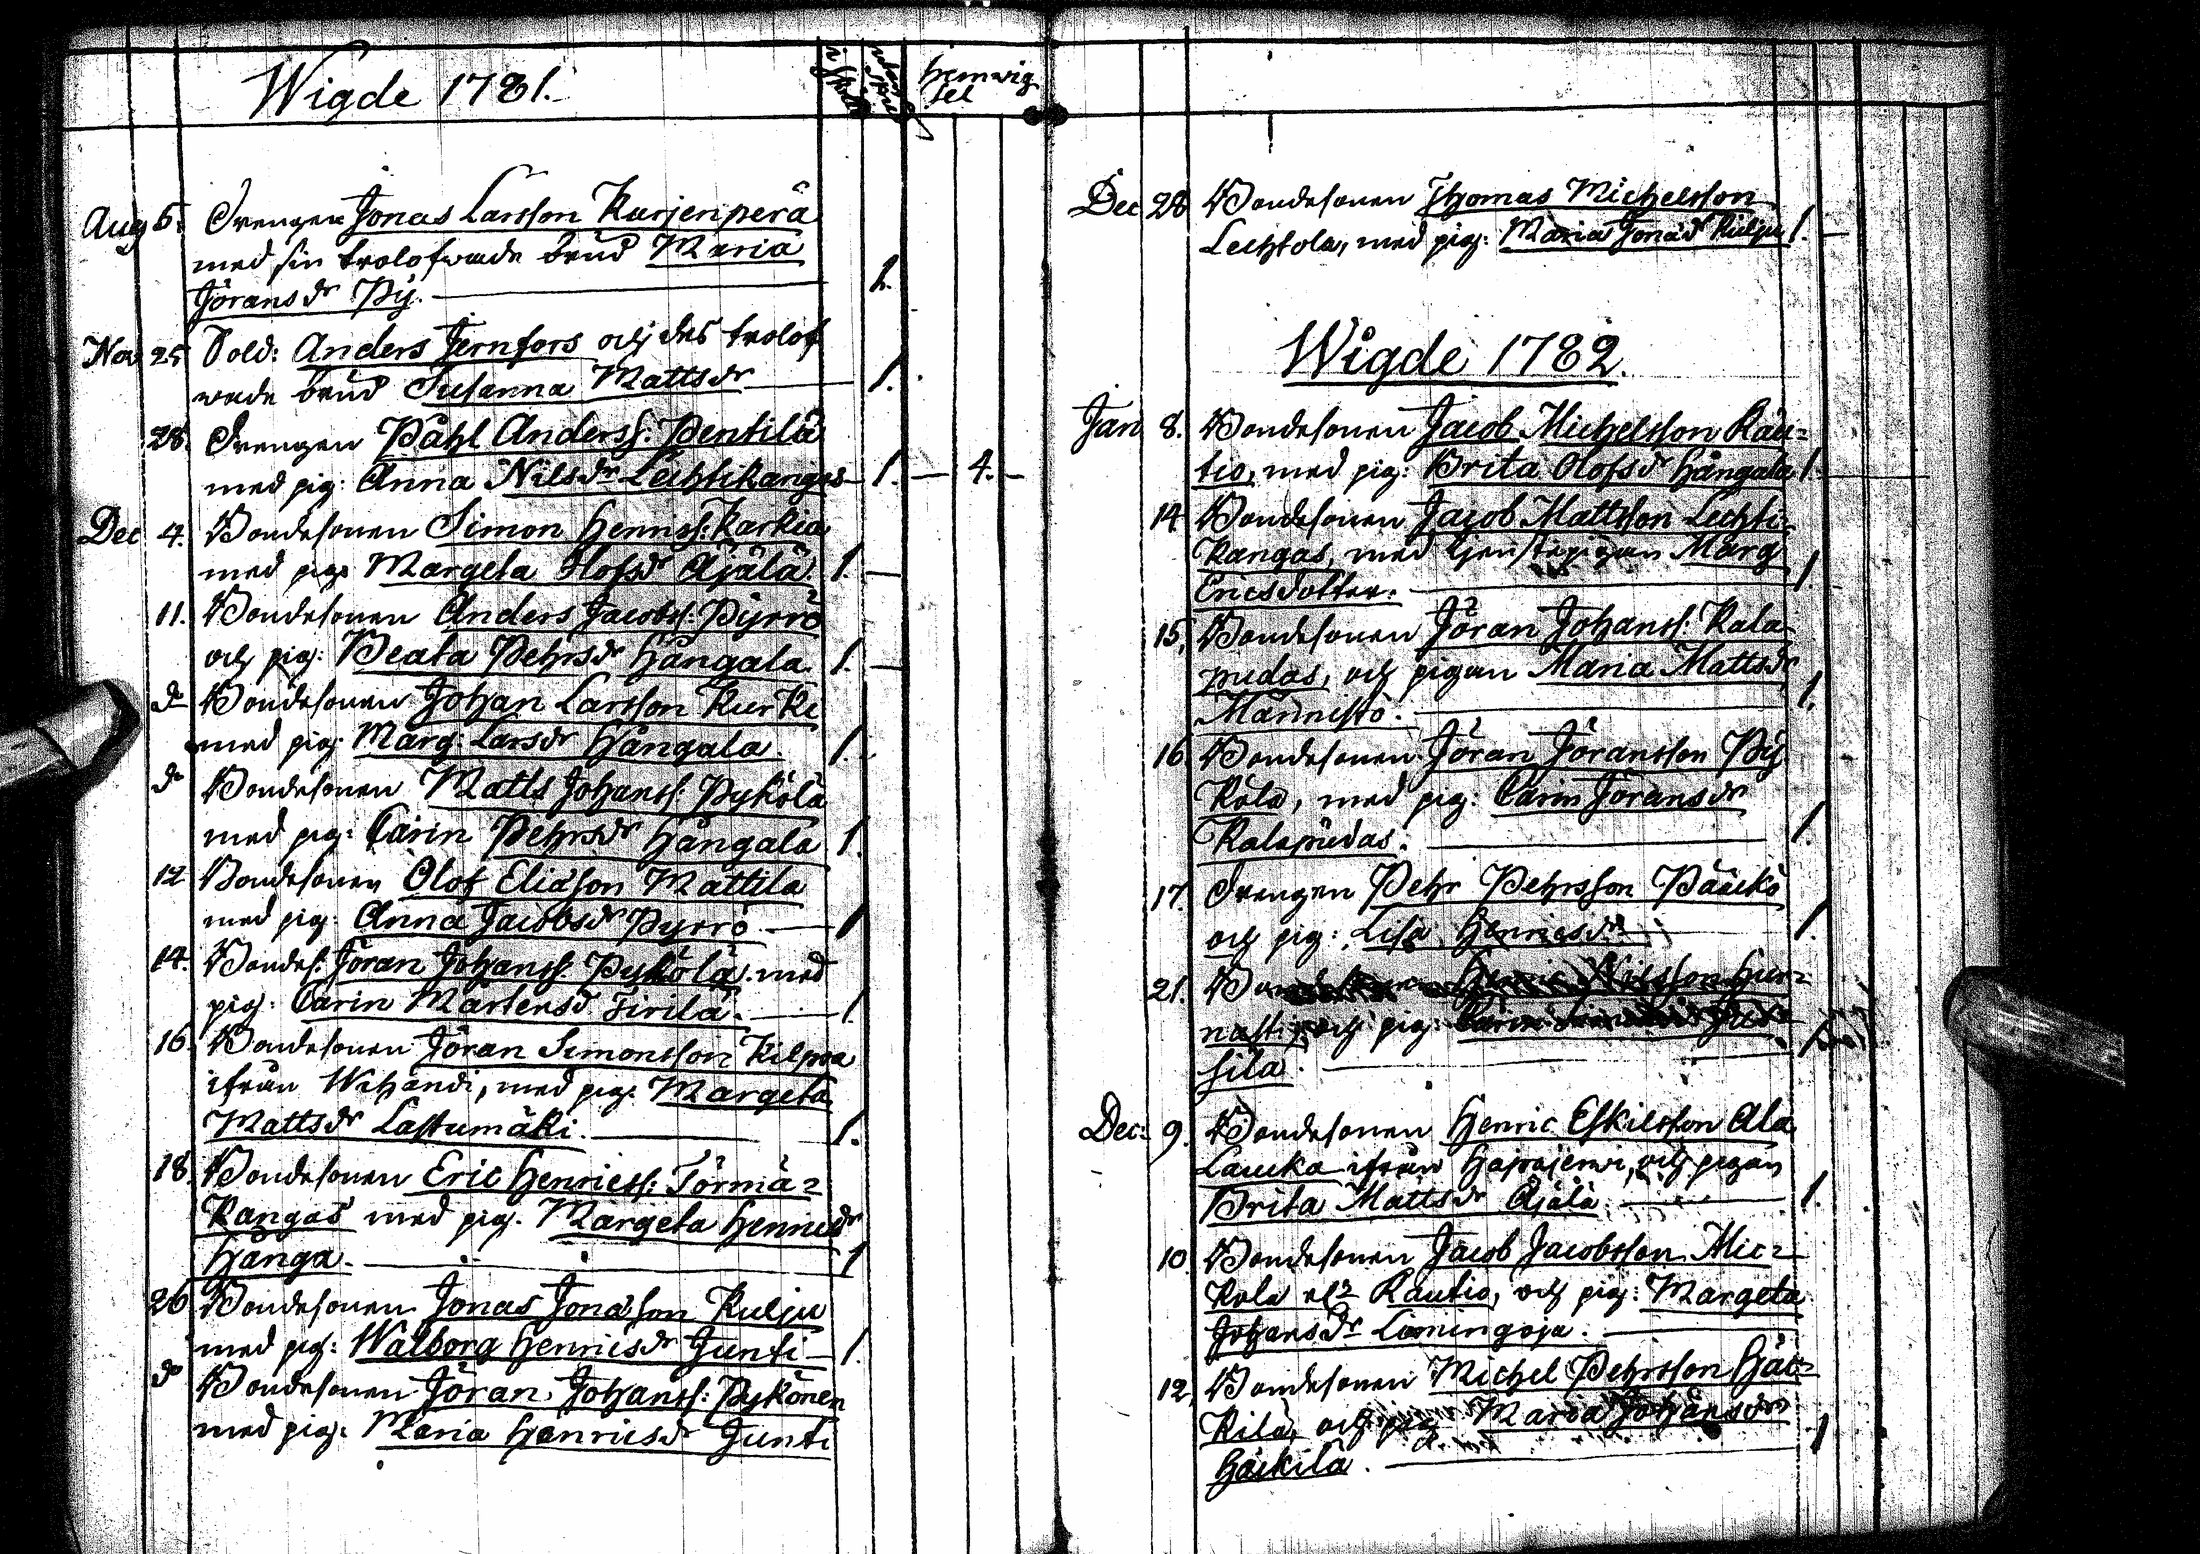 Wigde 1781.
hemwig
sel
Aug 5. Drengen Jonas Larsson Kurjenperä
med sin trolofwade brud Maria
Jöransdr Pÿ. 1.
Nov 25 Sold: Anders Jernfors och des trolof
wade brud Susanna Mattsdr 1.
28. Drengen Påhl Anderss: Pentilä
med pig: Anna Nilsdr Lechtikangas 1. 4.
Dec 4. Bondesonen Simon Henrics: Karkia
med pig: Margeta Olofsdr Äjälä. 1.
11. Bondesonen Anders Jacobss: Pyrrö
och pig: Beata Pehrsdr Hångala. 1.
do Bondesonen Johan Larsson Kurki
med pig: Marg: Larsdr Hångala. 1.
do Bondesonen Matts Johanss: Pykölä
med pig: Carin Pehrsdr Hångala 1.
12 Bondesonen Olof Eliäson Mattila
med pig: Anna Jacobsdr Pyrrö 1
14. Bondes: Jöran Johanss: Pykölä. med
pig: Carin Mårtensd Tirilä. 1.
16. Bondesonen Jöran Simonsson Kilpua
ifrån Wihandi, med pig: Margeta
Mattsdr Lastumäki. 1.
18. Bondesonen Eric Henricss: Törmä=
kangas med pig. Margeta Henricsdr
Hånga. 1
26 Bondesonen Jonas Jonäson Kulju
med pig: Walborg Henricsdr Junti 1.
do Bondesonen Jöran Johanss: Pykönen
med pig: Maria Henricsdr Junti
Dec 28 Bondesonen Thomas Michelsson
Lechtola, med pig: Maria Jonäd Kulju 1.
Wigde 1782.
Jan 8. Bondesonen Jacob Michelsson Rau=
tio, med pig: Brita Olofsdr Hångala 1.
14 Bondesonen Jacob Mattsson Lechti=
kangas, med tjenstepigan Marg
Ericsdotter. 1
15, Bondesonen Jöran Johanss: Kala
pudas, och pigan Maria Mattsdr
Männistö. 1.
16. Bondesonen Jöran Jöransson Pÿ
kölä, med pig: Carin Jöransdr
Kalapudas. 1.
17. Drengen Pehr Pehrsson Pääckö
och pig: Lisa Henricsdr 1.
21. Henric Nilsson Hur=
nasti, och pig: Carin
sila.
Dec: 9. Bondesonen Henric Eskilsson Ala
Laucka ifrån Hapajerwi, och pigan
Brita Mattsdr Äjälä 1.
10. Bondesonen Jacob Jacobsson Mic=
kola elr Rautio, och pig: Margeta
Johansdr Lomingoja.
12, Bondesonen Michel Pehrsson Häc=
kilä, och pig Maria Johansdr
Häckilä. 1